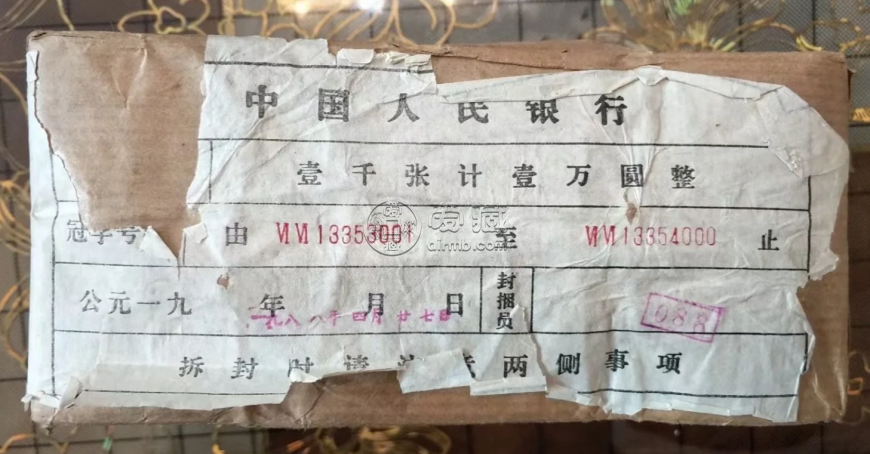 中国人民银行
壹千张计壹万圆整
冠字号 由 MM13353001 至 MM13354000 止
公元一九 年 月 日 封捆员 088
一九八八年四月廿七日
拆封时请 两侧事项
爱藏
airmb.com